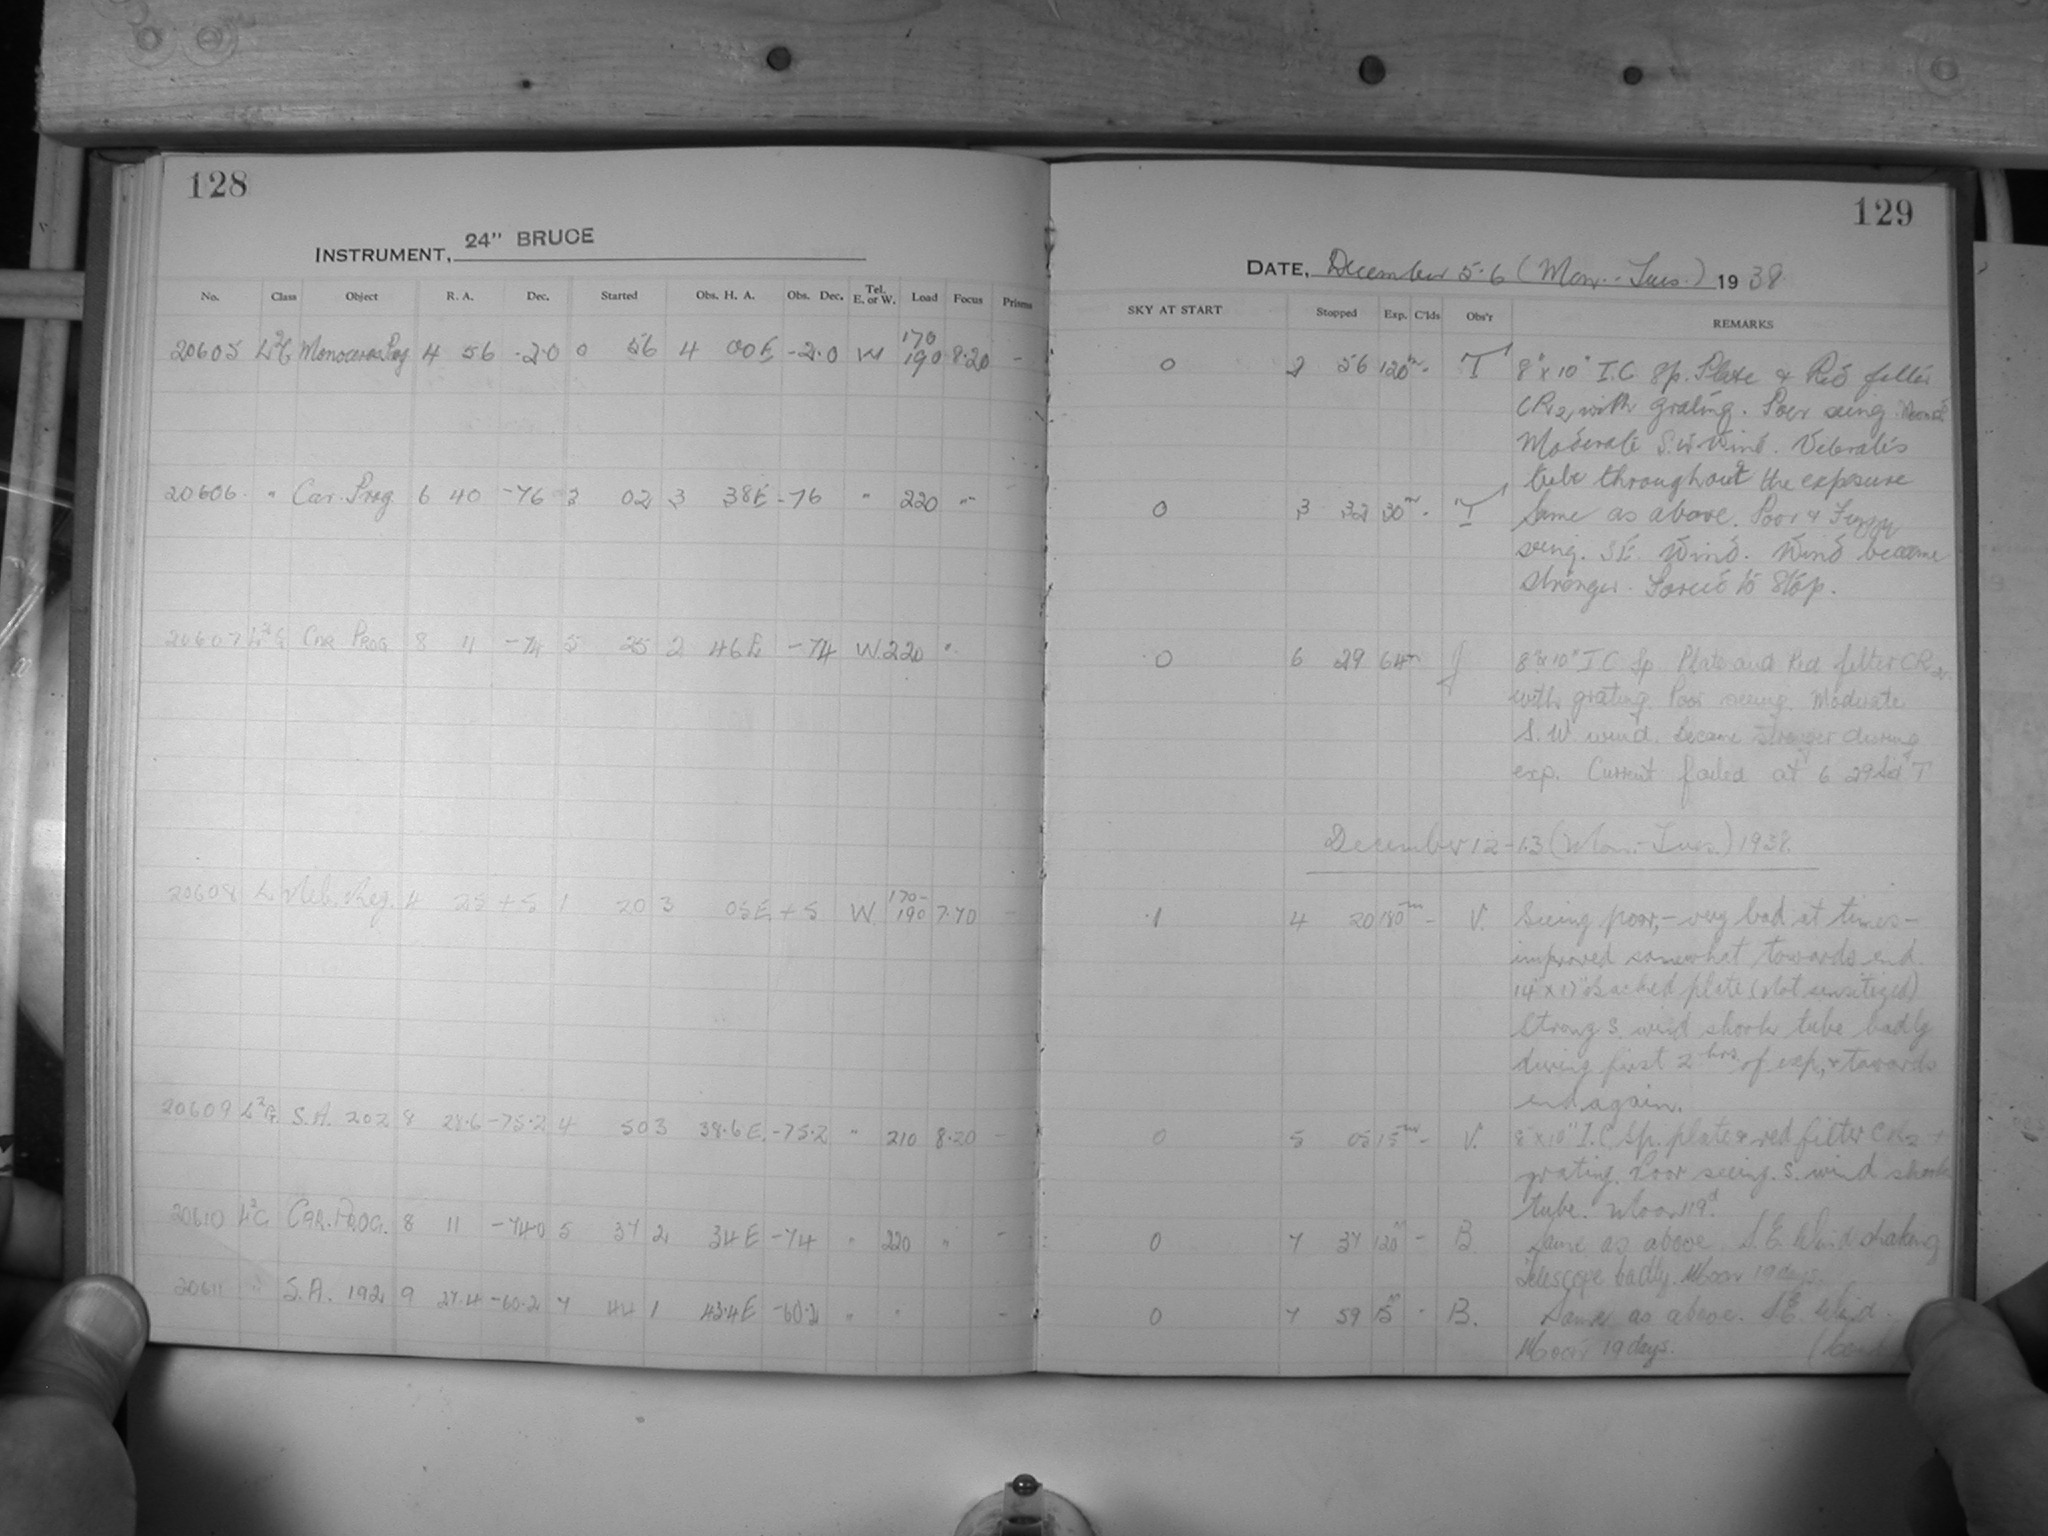 128
INSTRUMENT, 24" BRUCE
No. Class Object R. A. Dec. Started Obs. H. A. Obs. Dec. Tel. E. or W. Load Focus Prisms
20605 L²G Monoceros Prog 4 56 -2.0 0 56 4 00E -2.0 W 170 190 8.20 -
20606 " Car. Prog. 6 40 -76 3 02 3 38E -76 " 220 " -
20607 L²G CAR PROG 8 11 -74 5 25 2 46E -74 W 220 "
20608 L Neb. Reg. 4 25 +5 1 20 3 05E +5 W 170- 190 7.70 -
20609 L²G S.A. 202 8 28.6 -75.2 4 50 3 38.6E -75.2 " 210 8.20 -
20610 L²G CAR. PROG. 8 11 -74.0 5 37 2 34E -74 " 220 " -
20611 " S.A. 192 9 27.4 -60.2 7 44 1 43.4E -60.2 " " -
129
DATE, December 5-6 (Mon.-Tues.) 1938
SKY AT START Stopped Exp. C'lds Obs'r REMARKS
0 2 56 120m - T 8" x 10" I.C. Sp. Plate & Red filter
CR2, with grating. Poor seing.
Moderate S.W Wind. Vebrates
tube throughout the exposure
0 3 32 30m - T Same as above. Poor & Fuzzy
seing. S.E. Wind. Wind became
stronger. Forced to Stop.
0 6 29 64m J 8" x 10" I C Sp Plate and Red filter CR2
with grating. Poor seeing. Moderate
S.W. wind. became stronger during
exp. Current failed at 6 29 Sid T
December 12-13 (Mon.-Tues.) 1938.
1 4 20 180m - V. Seeing poor, - very bad at times -
improved somewhat towards end.
14" x 17" backed plate (Not sensitized)
Strong S. wind shook tube badly
during first 2 hrs. of exp., & towards
end again.
0 5 05 15m - V. 8" x 10" I.C. Sp. plate & red filter CR2 +
grating. Poor seeing. S. wind shook
tube. Moon 19d.
0 7 37 120m - B. Same as above. S.E. Wind shaking
Telescope badly. Moon 19 days.
0 7 59 15m - B. Same as above. S.E. Wind.
Moon 19 days.